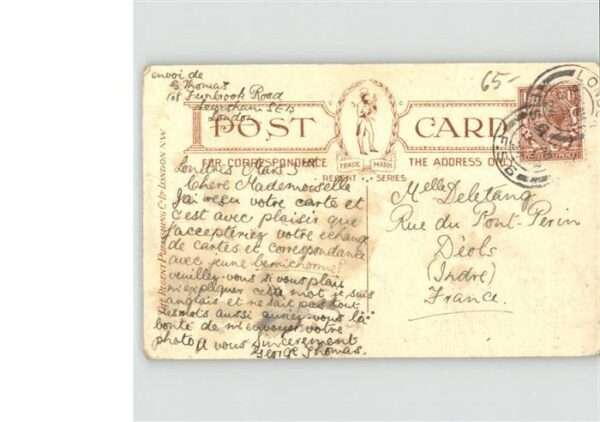 envoi de
G Thomas
Road
Lewisham SE13
London
65-
POST CARD
FOR CORRESPONDENCE THE ADDRESS ONLY
TRADE MARK
REGENT SERIES
THE REGENT PUBLISHING Co Ltd LONDON NW
Londres Mars 3
Chere Mademoiselle
J'ai reçu votre carte et
c'est avec plaisir que
j'accepterez votre echange
de cartes et correspondance
avec jeune berrichonne
veuillez-vous si vous plait
m'expliquer cela mot je suis
anglais et ne sait pas tout
les mots aussi auriez-vous la
bonté de m'envoyer votre
photo A vous sincerement
George Thomas.
Melle Deletang
Rue du Pont-Perin
Déols
(Indre)
France.